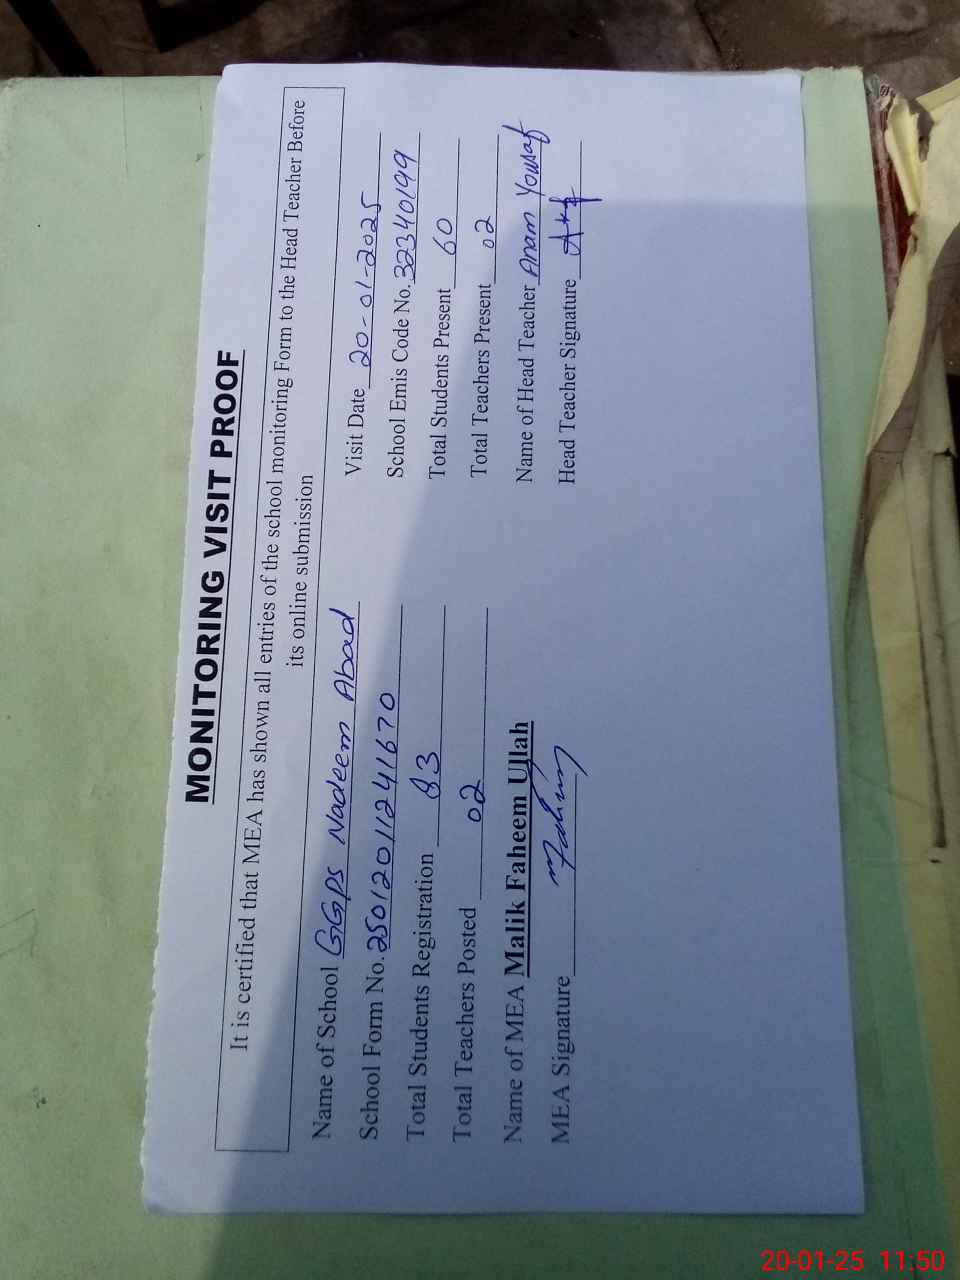 MONITORING VISIT PROOF
It is certified that MEA has shown all entries of the school monitoring Form to the Head Teacher Before
its online submission
Name of School GGPS Nadeem Abad Visit Date 20-01-2025
School Form No. 2501201124 1670 School Emis Code No. 32340199
Total Students Registration 83 Total Students Present 60
Total Teachers Posted 02 Total Teachers Present 02
Name of MEA Malik Faheem Ullah Name of Head Teacher Anam Yousaf
MEA Signature Faheem Head Teacher Signature
20-01-25 11:50